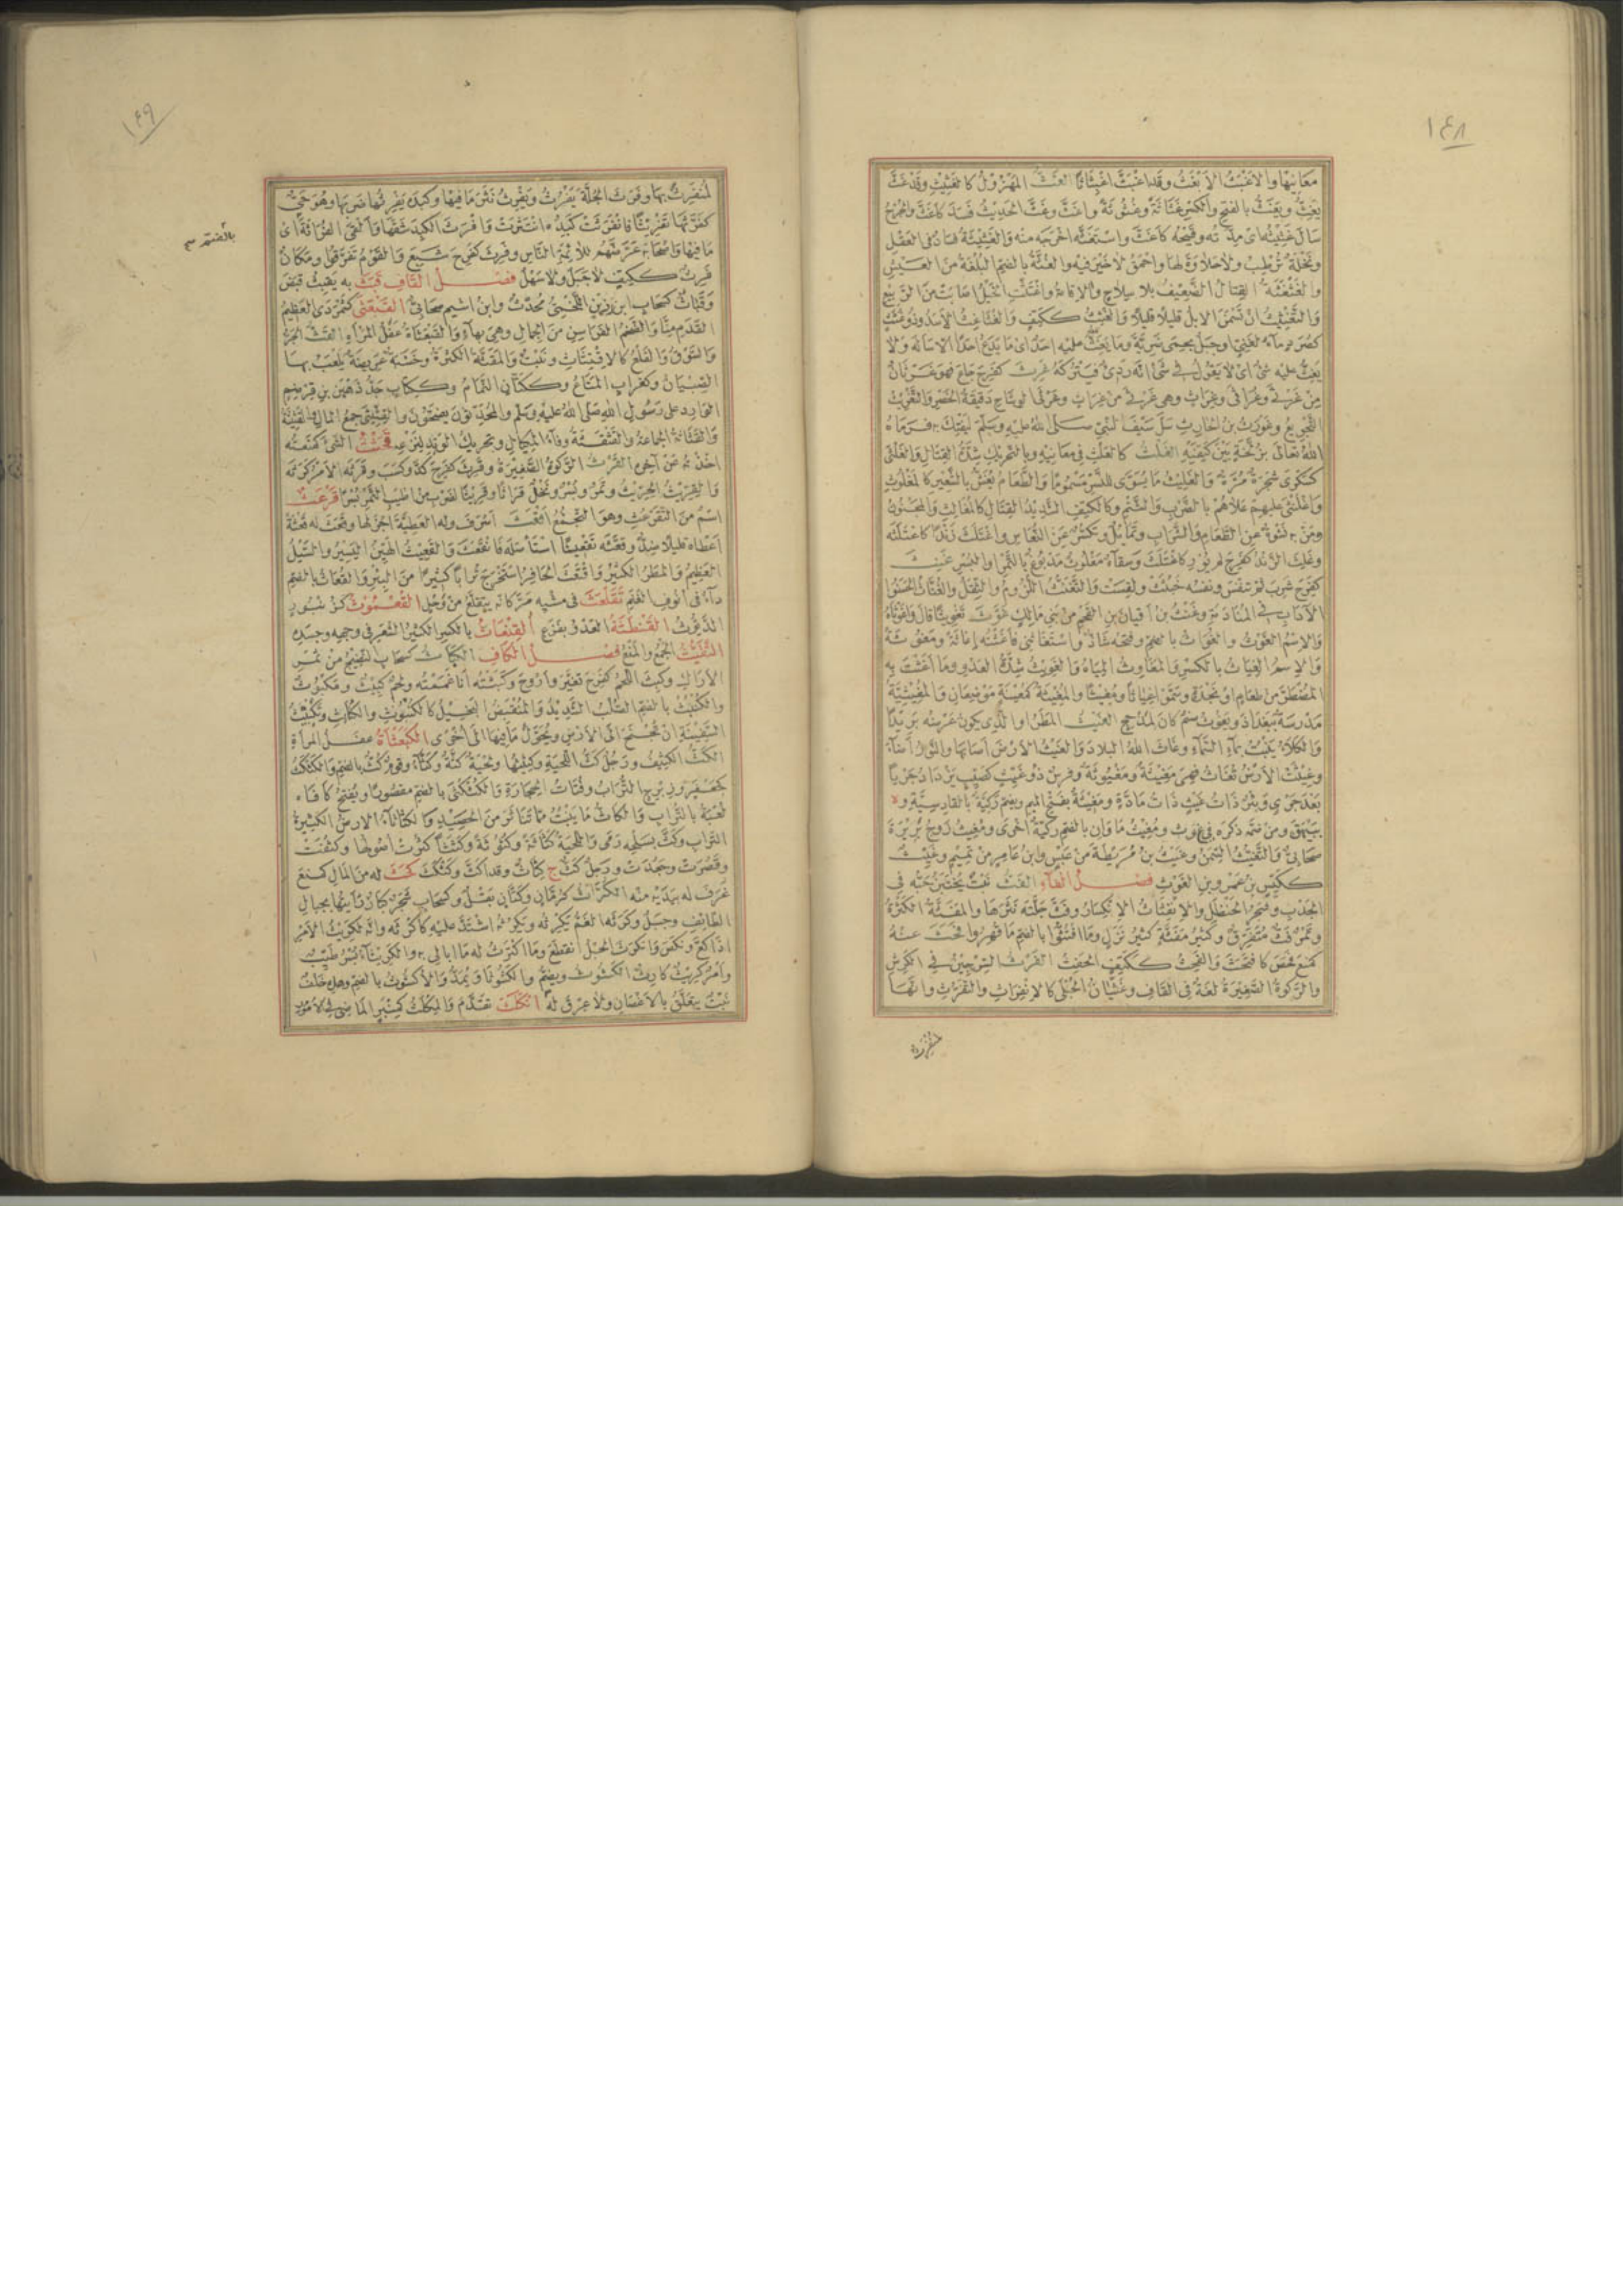 ١٤٨
معانيها والاغبث الابغث وقد اغبث اغبثاثا الغث المهزول كالغثيث وقد غث
يغث ويغث بالفتح والكسر غثاثة وغثوثة واغث وغث الحديث فسد كاغث والجرح
سال غثيثه اى مدته وقيحه كاغث واستغثه اخرجه منه والغثيثة فساد فى العقل
ونخلة ترطب ولا حلاوة لها واحمق لا خير فيه والغثة بالضم البلغة من العيش
والغثغثة القتال الضعيف بلا سلاح والاقامة واغتثت الخيل اصابت من الربيع
والتغثيث ان تسمن الابل قليلا قليلا والغثث ككتف والغثاغث الاسد وذو غثث
كصرد ماء لغنى او جبل بحمى ضرية وما يغث عليه احد اى ما يدع احدا الا ساله ولا
يغث عليه شئ اى لا يقول فى شئ انه ردئ فيتركه غرث كفرح جاع فهو غرثان
من غرثى وغراثى وغراث وهى غرثى من غراث وغرثى الوشاح دقيقة الخصر والتغريث
التجويع وغورث بن الحارث سل سيف النبى صلى الله عليه وسلم ليفتك به فرماه
الله تعالى بزلخة بين كتفيه الغلث كالعلث فى معانيه وبالتحريك شدة القتال والغلثى
كسكرى شجرة مرة والغليث ما يسوى للنسر مسموما والطعام يغش بالشعير كالمغلوث
واغلنثى عليهم علاهم بالضرب والشتم وككتف الشديد القتال كالمغالث والمجنون
ومن به نشوة عن الطعام والشراب وتمايل وتكسر عن النعاس واغتلث زندا كاعتلثه
وغلث الزند كفرح لم يور كاغتلث وسقاء مغلوث مدبوغ بالتمر او البسر غنث
كفرح شرب ثم تنفس ونفسه خبثت ولقست والتغنث اللزوم والثقل والغناث الحسنوا
الآداب فى المنادمة وغنث بن افيان بن القحم من بنى مالك غوث تغويثا قال واغوثاه
والاسم الغوث والغواث بالضم وفتحه شاذ واستغاثنى فاغثته اغاثة ومغوثة
والاسم الغياث بالكسر والمغاوث المياه والغويث شدة العدو وما اغثت به
المضطر من طعام او نجدة وسموا غياثا ومغيثا والمغيثة كمعينة موضعان والمغيثية
مدرسة ببغداد ويغوث صنم كان لمذحج الغيث المطر او الذى يكون عرضه بريدا
والكلأ ينبت بماء السماء وغاث الله البلاد والغيث الارض اصابها والنور اضاء
وغيثت الارض تغاث فهى مغيثة ومغيوثة وفرس ذو غيث كصيب يزداد جريا
بعد جرى وبئر ذات غيث ذات مادة ومغيثة بفتح الميم وبضم ركية بالقادسية و
ببيهق ومن ضمه ذكره فى غ و ث ومغيث ماوان بالضم ركية اخرى ومغيث زوج بريرة
صحابى والتغيث السمن وغيث بن مريطة من عبس وابن عامر من تميم وغيث
ككيس بن عمرو بن الغوث فصل الفاء الفث نبت يختبز حبه فى
الجدب وشجر الحنظل والانفثاث الانكسار وفث جلته نثرها والمفثة الكثرة
وتمر فث متفرق وكثير مفثة كثير نزل وما افتثوا بالضم ما قهروا فحث عنه
كمنع فحص كافتحث والفحث ككتف الحفث الفرث السرجين فى الكرش
والركوة الصغيرة لغة فى القاف وغثيان الحبلى كالانفراث والتفرث وانها
١٤٩
لمنفرث بها وفرث الجلة يفرث ويفرث نثر ما فيها وكبده يفرثها ضربها وهو حى
كفرثها تفريثا فانفرثت كبده انتثرت وافرث الكبد شقها والقى الفراثة اى
ما فيها واصحابه عرضهم للائمة الناس وفرث كفرح شبع والقوم تفرقوا ومكان
فرث ككتف لا جبل ولا سهل فصل القاف قبث به يقبث قبض
وقباث كسحاب ابن رزين اللخمى محدث وابن اشيم صحابى القبعثى كشمردى العظيم
القدم منا والضخم الفراسن من الجمال وهى بهاء والقبعثاة عفل المرأة القث الجر
والسوق والقلع كالاقتثاث ونبت والمقثة الكثرة وخشبة عريضة يلعب بها
الصبيان وكغراب المتاع وككتان النمام وككتاب جد ذهبن بن قرضم
الوارد على رسول الله صلى الله عليه وسلم والمحدثون يضحفون والقثيثى جمع المال القثيثة
والقثاثة الجماعة والقثقثة وفاء المكيال وتحريك الوتد لنزعه قحثت الشئ كمنعته
اخذته عن آخره القرث الركوة الصغيرة وقرث كفرح كد وكسب وقرثه الامر كرثه
والقريث الجريث وتمر وبسر ونخل قراثا وقريثا لضرب من اطيب التمر بسرا قرعث
اسم من التقرعث وهو التجمع اقعث اسرف وله العطية اجزلها وقعث له قعثة
اعطاه قليلا ضد وقعثه تقعيثا استأصله فانقعث والقعيث الهين اليسير والسيل
العظيم والمطر الكثير واقتعث الحافر استخرج ترابا كثيرا من البئر والقعاث بالضم
داء فى انوف الغنم تقلعث فى مشيه مر كانه يتقلع من وحل القعموث كزنبور
الديوث القنطثة العدو بفزع القنعاث بالكسر الكثير الشعر فى وجهه وجسده
التقيث الجمع والمنع فصل الكاف الكباث كسحاب النضيج من ثمر
الاراك وكبث اللحم كفرح تغير واروح وكبثته انا غممته ولحم كبيث ومكبوث
والكنبث بالضم الصلب الشديد والمنقبض البخيل كالكنبوث والكنابث وتكبيث
السفينة ان تجنح الى الارض ويحول ما فيها الى اخرى الكبعثاة عفل المرأة
الكث الكثيف ورجل كث اللحية وكثيثها ولحية كثة وكثاء وقوم كث بالضم والكثكث
كجعفر وزبرج التراب وفتات الحجارة والكثكثى بالضم مقصورا ويفتح كافاه
لعبة بالتراب والكاث ما ينبت مما تناثر من الحصيد وكالكثاثاء الارض الكثيرة
التراب وكث بسلحه رمى واللحية كثاثة وكثوثة وكثثا كثرت اصولها وكثفت
وقصرت وجعدت ورجل كث ج كثاث وقد اكث وكثكث كحث له من المال كمنع
غرف له بيديه منه الكراث كرمان وكتان بقل وكسحاب شجر كبار رأيتها بجبال
الطائف وجبل وكرثه الغم يكرثه ويكرثه اشتد عليه كاكرثه وانه لكريث الامر
اذا كع ونكص وانكرث الحبل انقطع وما اكترث له ما ابالى به والكريثاء بسر طيب
وامر كريث كارث الكشوث ويضم والكشوثا ويمد والاكشوث بالضم وهذه خلف
نبت يتعلق بالاغصان ولا عرق له انكلث تقدم والمكلث كمنبر الماضى فى الامور
بالضم صح